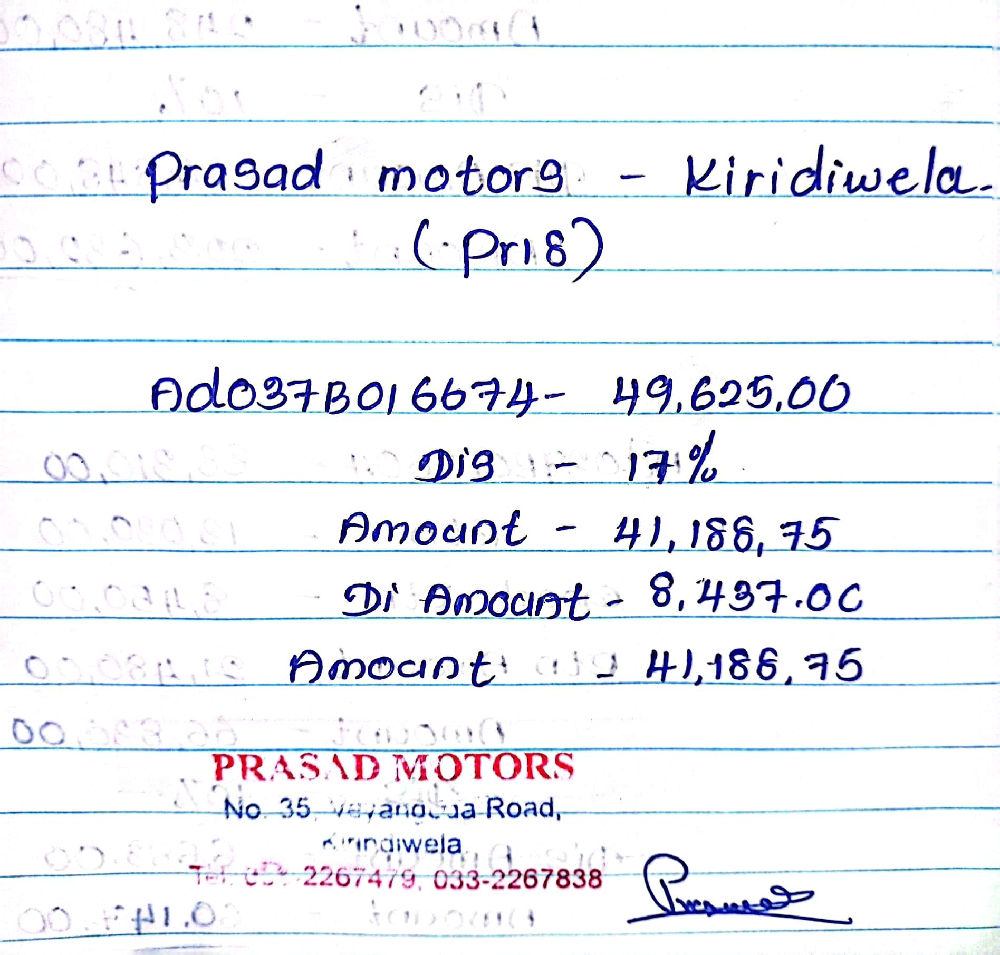 Prasad motors - Kiridiwela.
(Pris)
Ad037B016674- 49,625.00
Dis - 17%
Amount - 41,188,75
Di Amount - 8,437.00
Amount - 41,188,75
PRASAD MOTORS
No. 35, Road,
Kirindiwela.
Tel: 2267479, 033-2267838